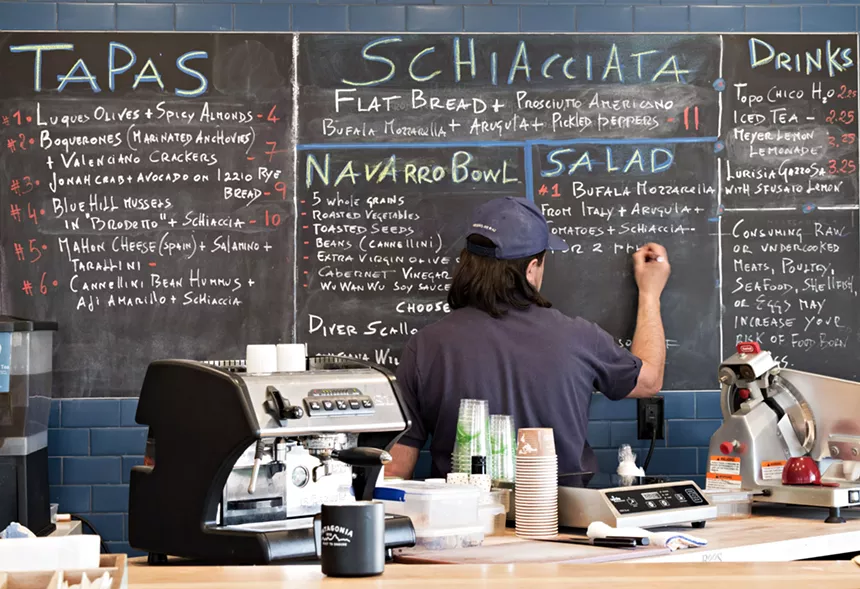 TAPAS
#1. LUQUES OLIVES + SPICY ALMONDS - 4
#2. BOQUERONES (MARINATED ANCHOVIES)
+ VALENCIANO CRACKERS - 7
#3. JONAH CRAB + AVOCADO ON IZZIO RYE
BREAD - 9
#4. BLUE HILL MUSSELS
IN "BRODETTO" + SCHIACCIA - 10
#5. MAHON CHEESE (SPAIN) + SALAMINO +
TARALLINI -
#6. CANNELLINI BEAN HUMMUS +
AJI AMARILLO + SCHIACCIA
SCHIACCIATA
FLAT BREAD + PROSCIUTTO AMERICANO
BUFALA MOZZARELLA + ARUGULA + PICKLED PEPPERS - 11
NAVARRO BOWL
- 5 WHOLE GRAINS
- ROASTED VEGETABLES
- TOASTED SEEDS
- BEANS (CANNELLINI)
- EXTRA VIRGIN OLIVE
- CABERNET VINEGAR
- WU WAN WU SOY SAUCE
CHOOSE
DIVER SCALLO
SALAD
#1 BUFALA MOZZARELLA
FROM ITALY + ARUGULA +
TOMATOES + SCHIACCIA -
FOR 2
DRINKS
TOPO CHICO H2O 2.25
ICED TEA - 2.25
MEYER LEMON
LEMONADE 3.25
LURISIA GAZZOSA 3.25
WITH SFUSATO LEMON
CONSUMING RAW
OR UNDERCOOKED
MEATS, POULTRY,
SEAFOOD, SHELLFISH,
OR EGGS MAY
INCREASE YOUR
RISK OF FOOD BORN
PATAGONIA